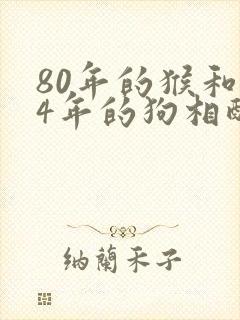 80年的猴和
4年的狗相
纳蘭禾子